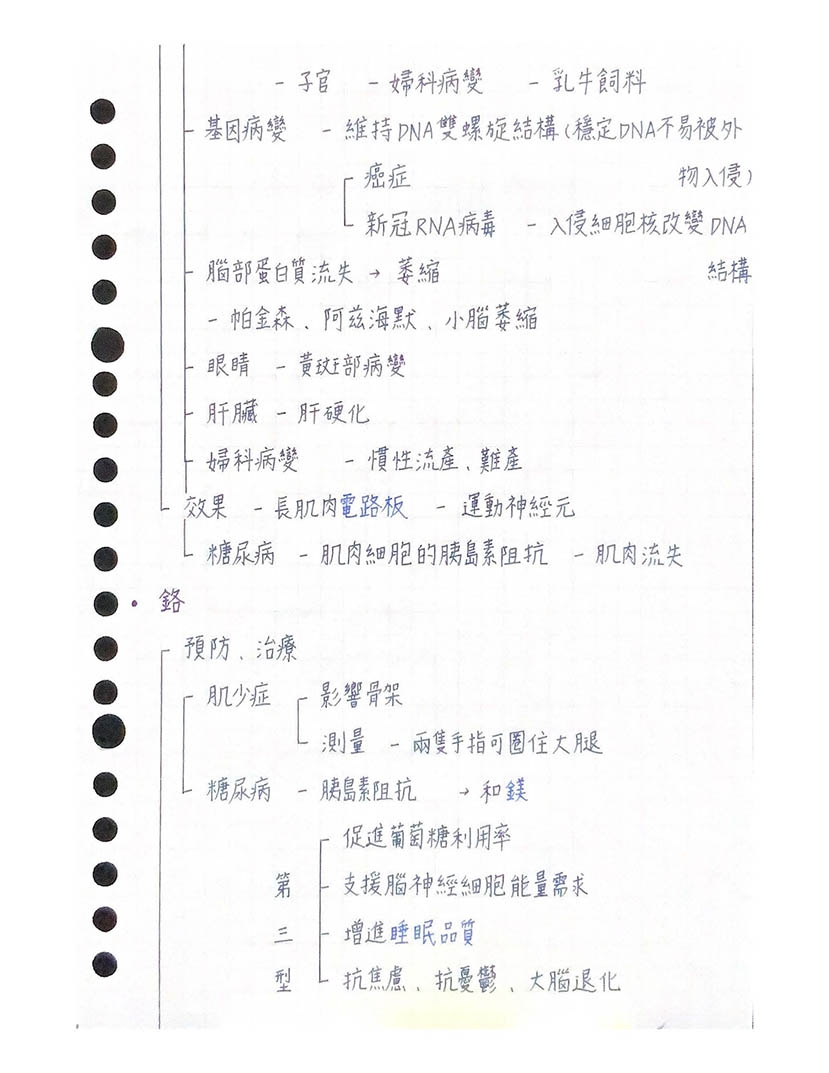 - 子宮 - 婦科病變 - 乳牛飼料
- 基因病變 - 維持DNA雙螺旋結構(穩定DNA不易被外
癌症 物入侵)
新冠RNA病毒 - 入侵細胞核改變DNA
- 腦部蛋白質流失 → 萎縮 結構
- 帕金森、阿茲海默、小腦萎縮
- 眼睛 - 黃斑部病變
- 肝臟 - 肝硬化
- 婦科病變 - 慣性流產、難產
效果 - 長肌肉電路板 - 運動神經元
糖尿病 - 肌肉細胞的胰島素阻抗 - 肌肉流失
• 鉻
預防、治療
肌少症 影響骨架
測量 - 兩隻手指可圈住大腿
糖尿病 - 胰島素阻抗 → 和鎂
促進葡萄糖利用率
第 - 支援腦神經細胞能量需求
三 - 增進睡眠品質
型 抗焦慮、抗憂鬱、大腦退化